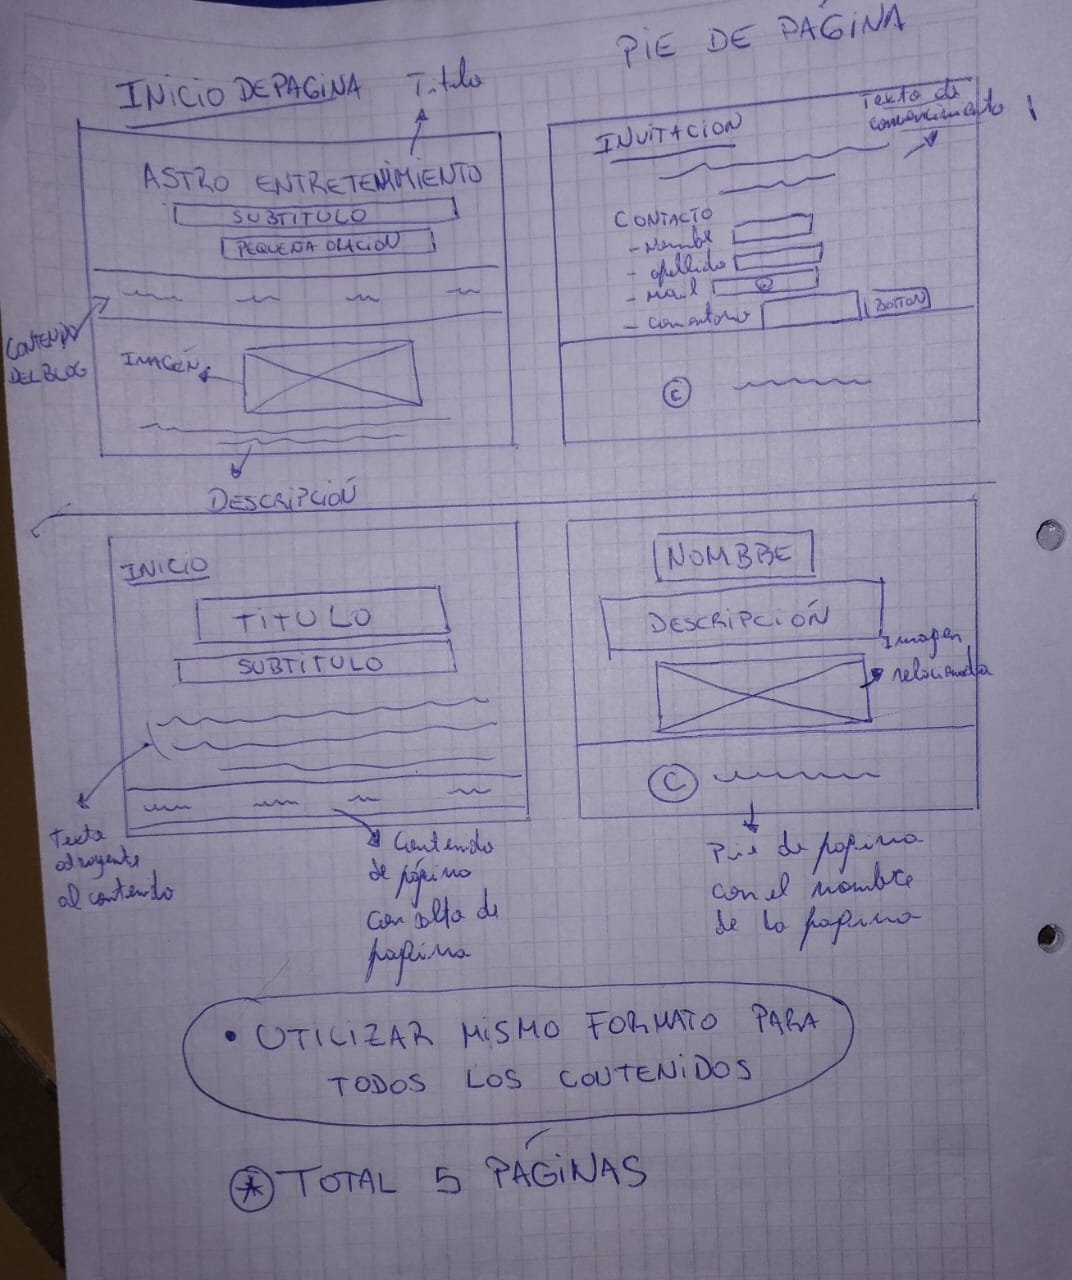 PIE DE PÁGINA
INICIO DE PAGINA
Titulo
ASTRO ENTRETENIMIENTO
SUBTITULO
PEQUEÑA ORACIÓN
CONTENIDO
DEL BLOG
IMAGEN
DESCRIPCIÓN
Texto de
convencimiento
INVITACION
CONTACTO
- Nombre
- apellido
- mail
@
- comentario
BOTTON
©
INICIO
TITULO
SUBTITULO
Texto
atrayente
al contenido
Contenido
de página
con alta de
página
NOMBRE
DESCRIPCIÓN
Imagen
relacionada
©
Pie de pagina
con el nombre
de la pagina
• UTILIZAR MISMO FORMATO PARA
TODOS LOS CONTENIDOS
* TOTAL 5 PÁGINAS